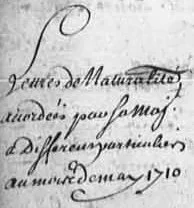 Lettres de Naturalité,
accordées par sa Maj.
a Differens particuliers
au mois de may 1710